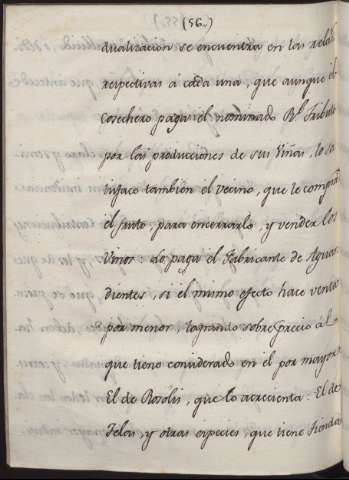 (56.)
dualizacion se encuentra en las relas
respectivas á cada una, que aunque el
Cosechero paga el nominado Rl. Tributo
por las producciones de sus Viñas, lo sa
tisface tambien el vecino, que le compra
el fruto, para encerrarlo, y vender los
Vinos: Lo paga el Fabricante de Aguar
dientes, si el mismo efecto hace venta
por menor, logrando sobre precio al
que tiene considerado en el por mayor:
El de Rosolis, que lo acrecienta: El de
Telas, y otras especies, que tiene tienda